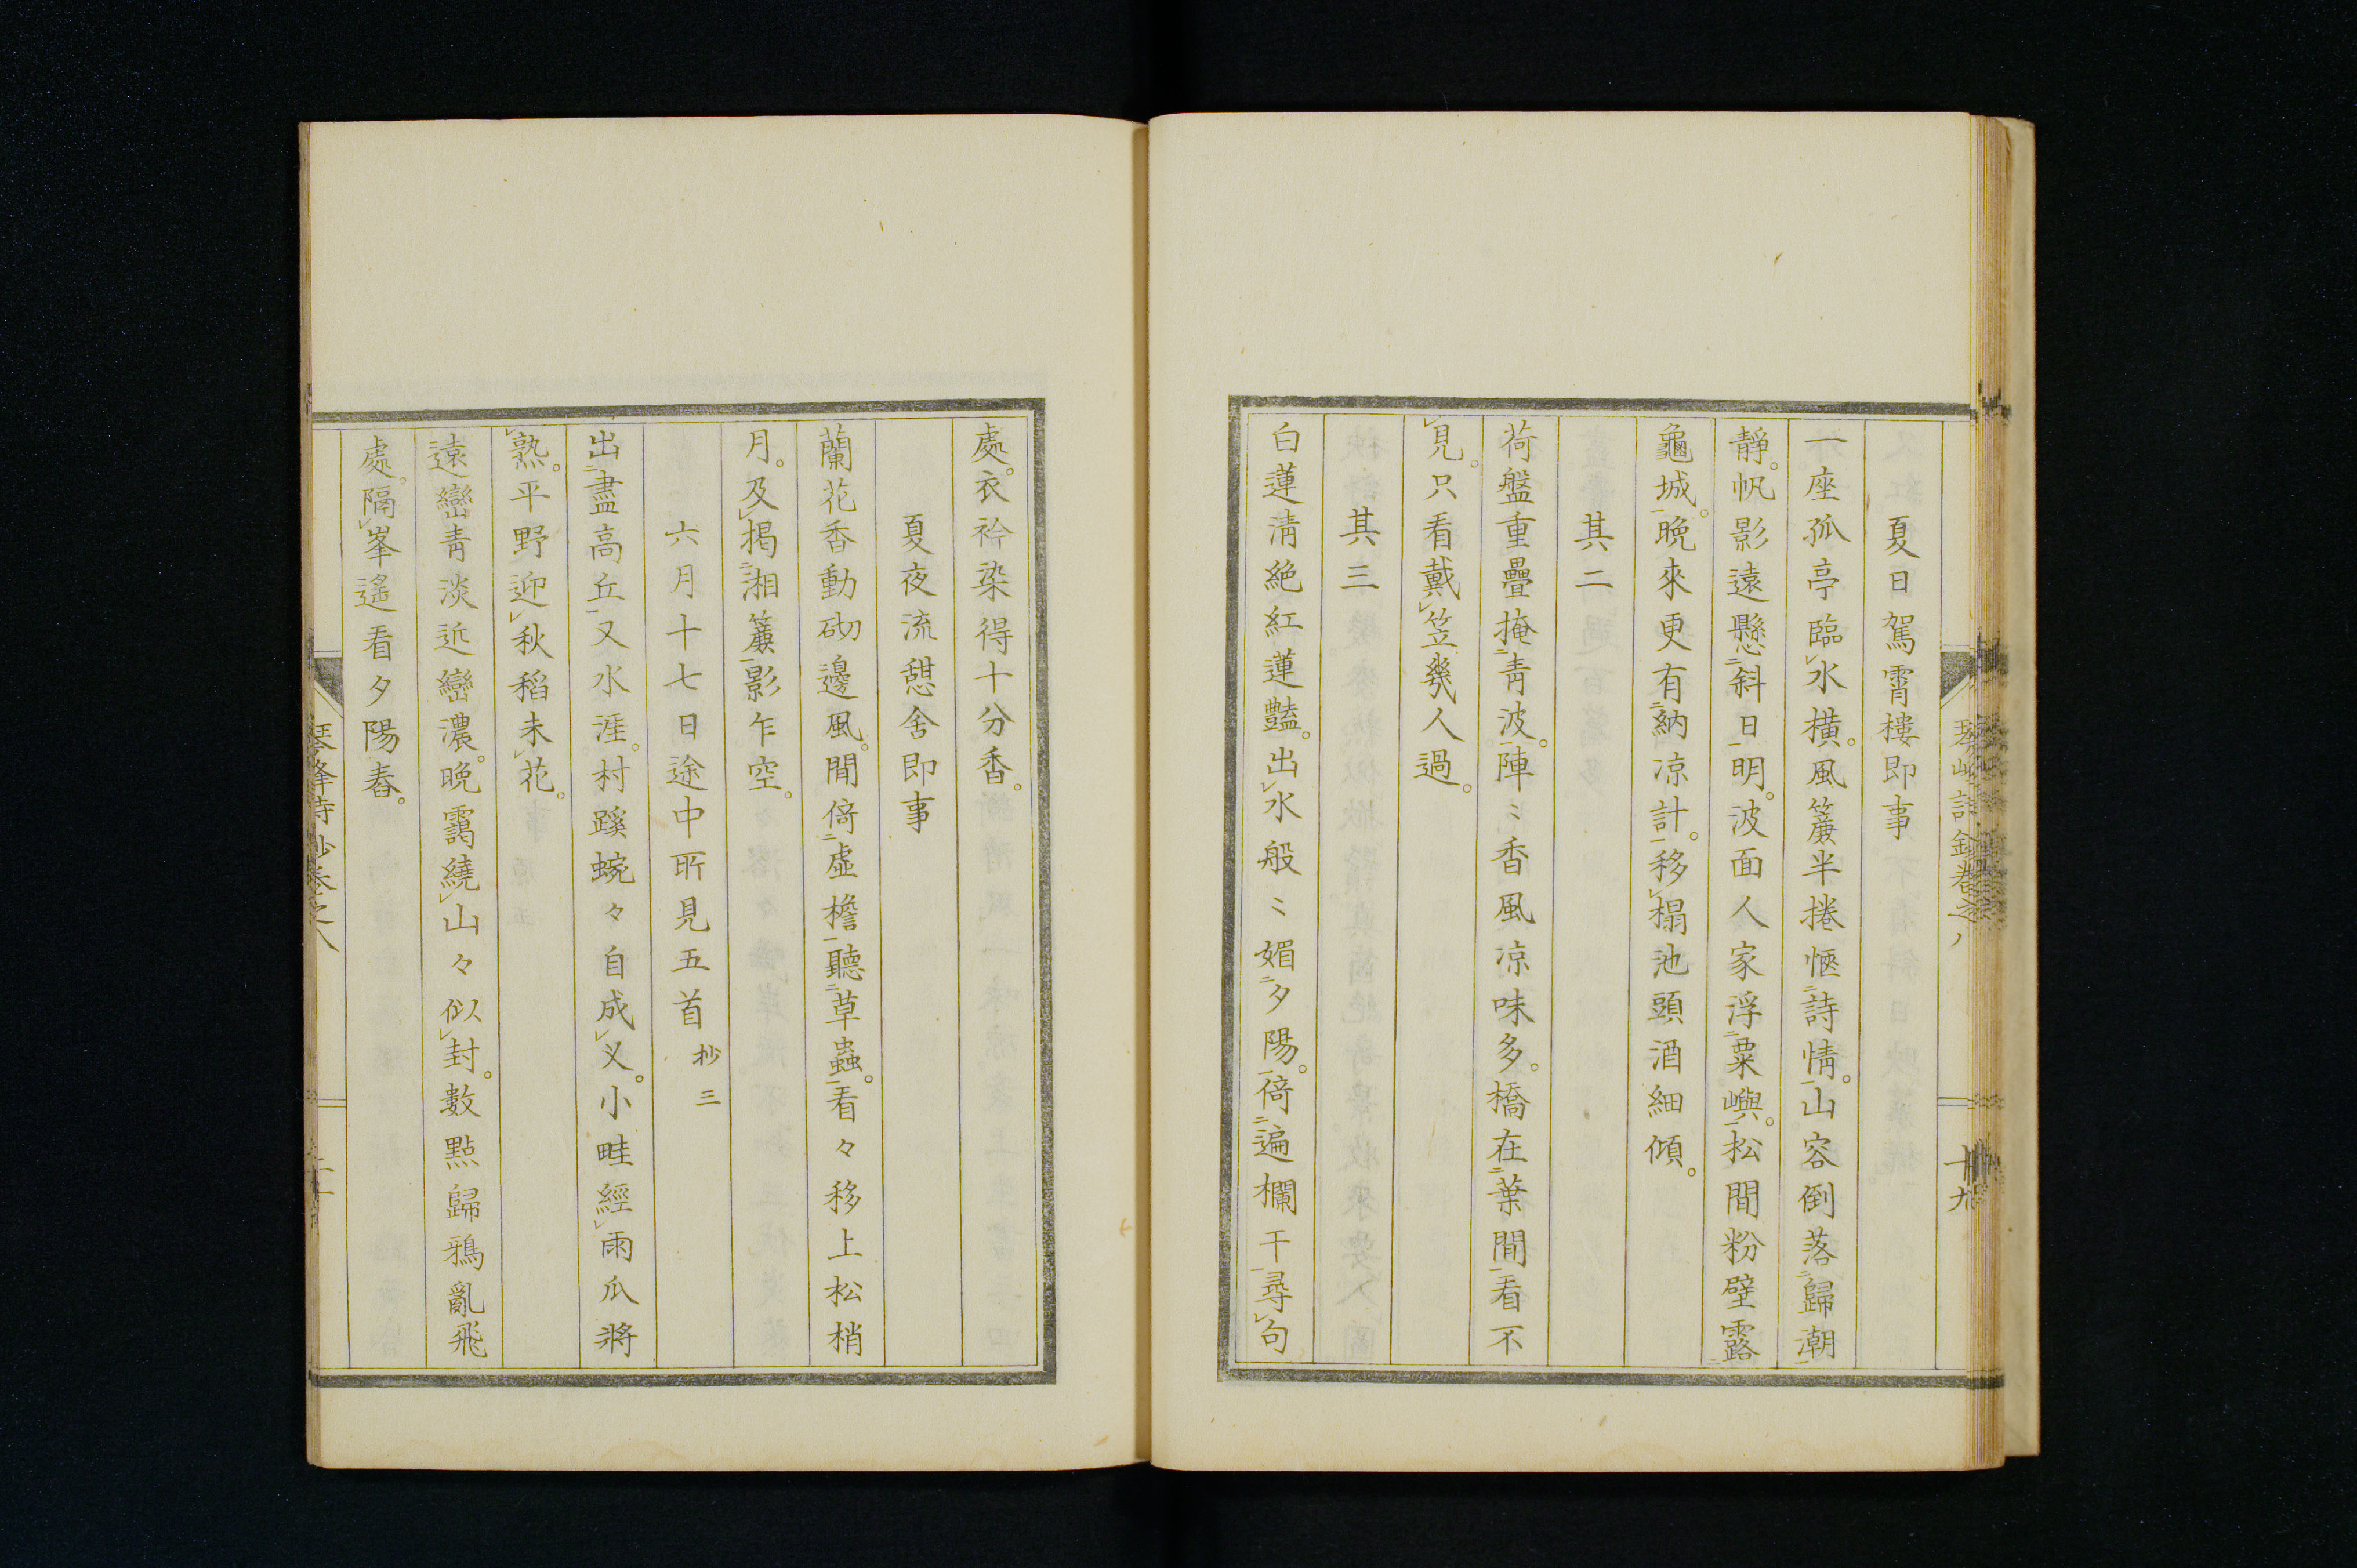 夏日駕霄樓即事
一座孤亭臨水橫。風簾半捲愜詩情。山容倒落歸潮
靜。帆影遠懸斜日明。波面人家浮粟嶼。松間粉壁露
龜城。晚來更有納凉計。移榻池頭酒細傾。
其二
荷盤重疊掩青波。陣〻香風凉味多。橋在葉間看不
見。只看戴笠幾人過。
其三
白蓮清絶紅蓮豔。出水般〻媚夕陽。倚遍欄干尋句
處。衣衿染得十分香。
夏夜流憩舍即事
蘭花香動砌邊風。間倚虛檐聽草蟲。看々移上松梢
月。及揭湘簾影乍空。
六月十七日途中所見五首 抄三
出盡高丘又水涯。村蹊蜿々自成义。小畦經雨瓜將
熟。平野迎秋稻未花。
遠巒青淡近巒濃。晚靄繞山々似封。數點歸鴉亂飛
處。隔峯遙看夕陽舂。
琴峰詩鈔卷之八